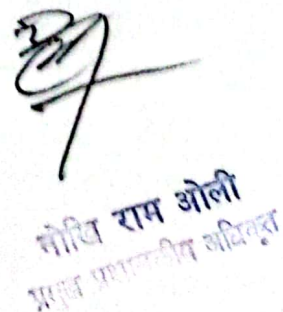 मोखि राम ओली
प्रमुख प्रशासकीय अधिकृत